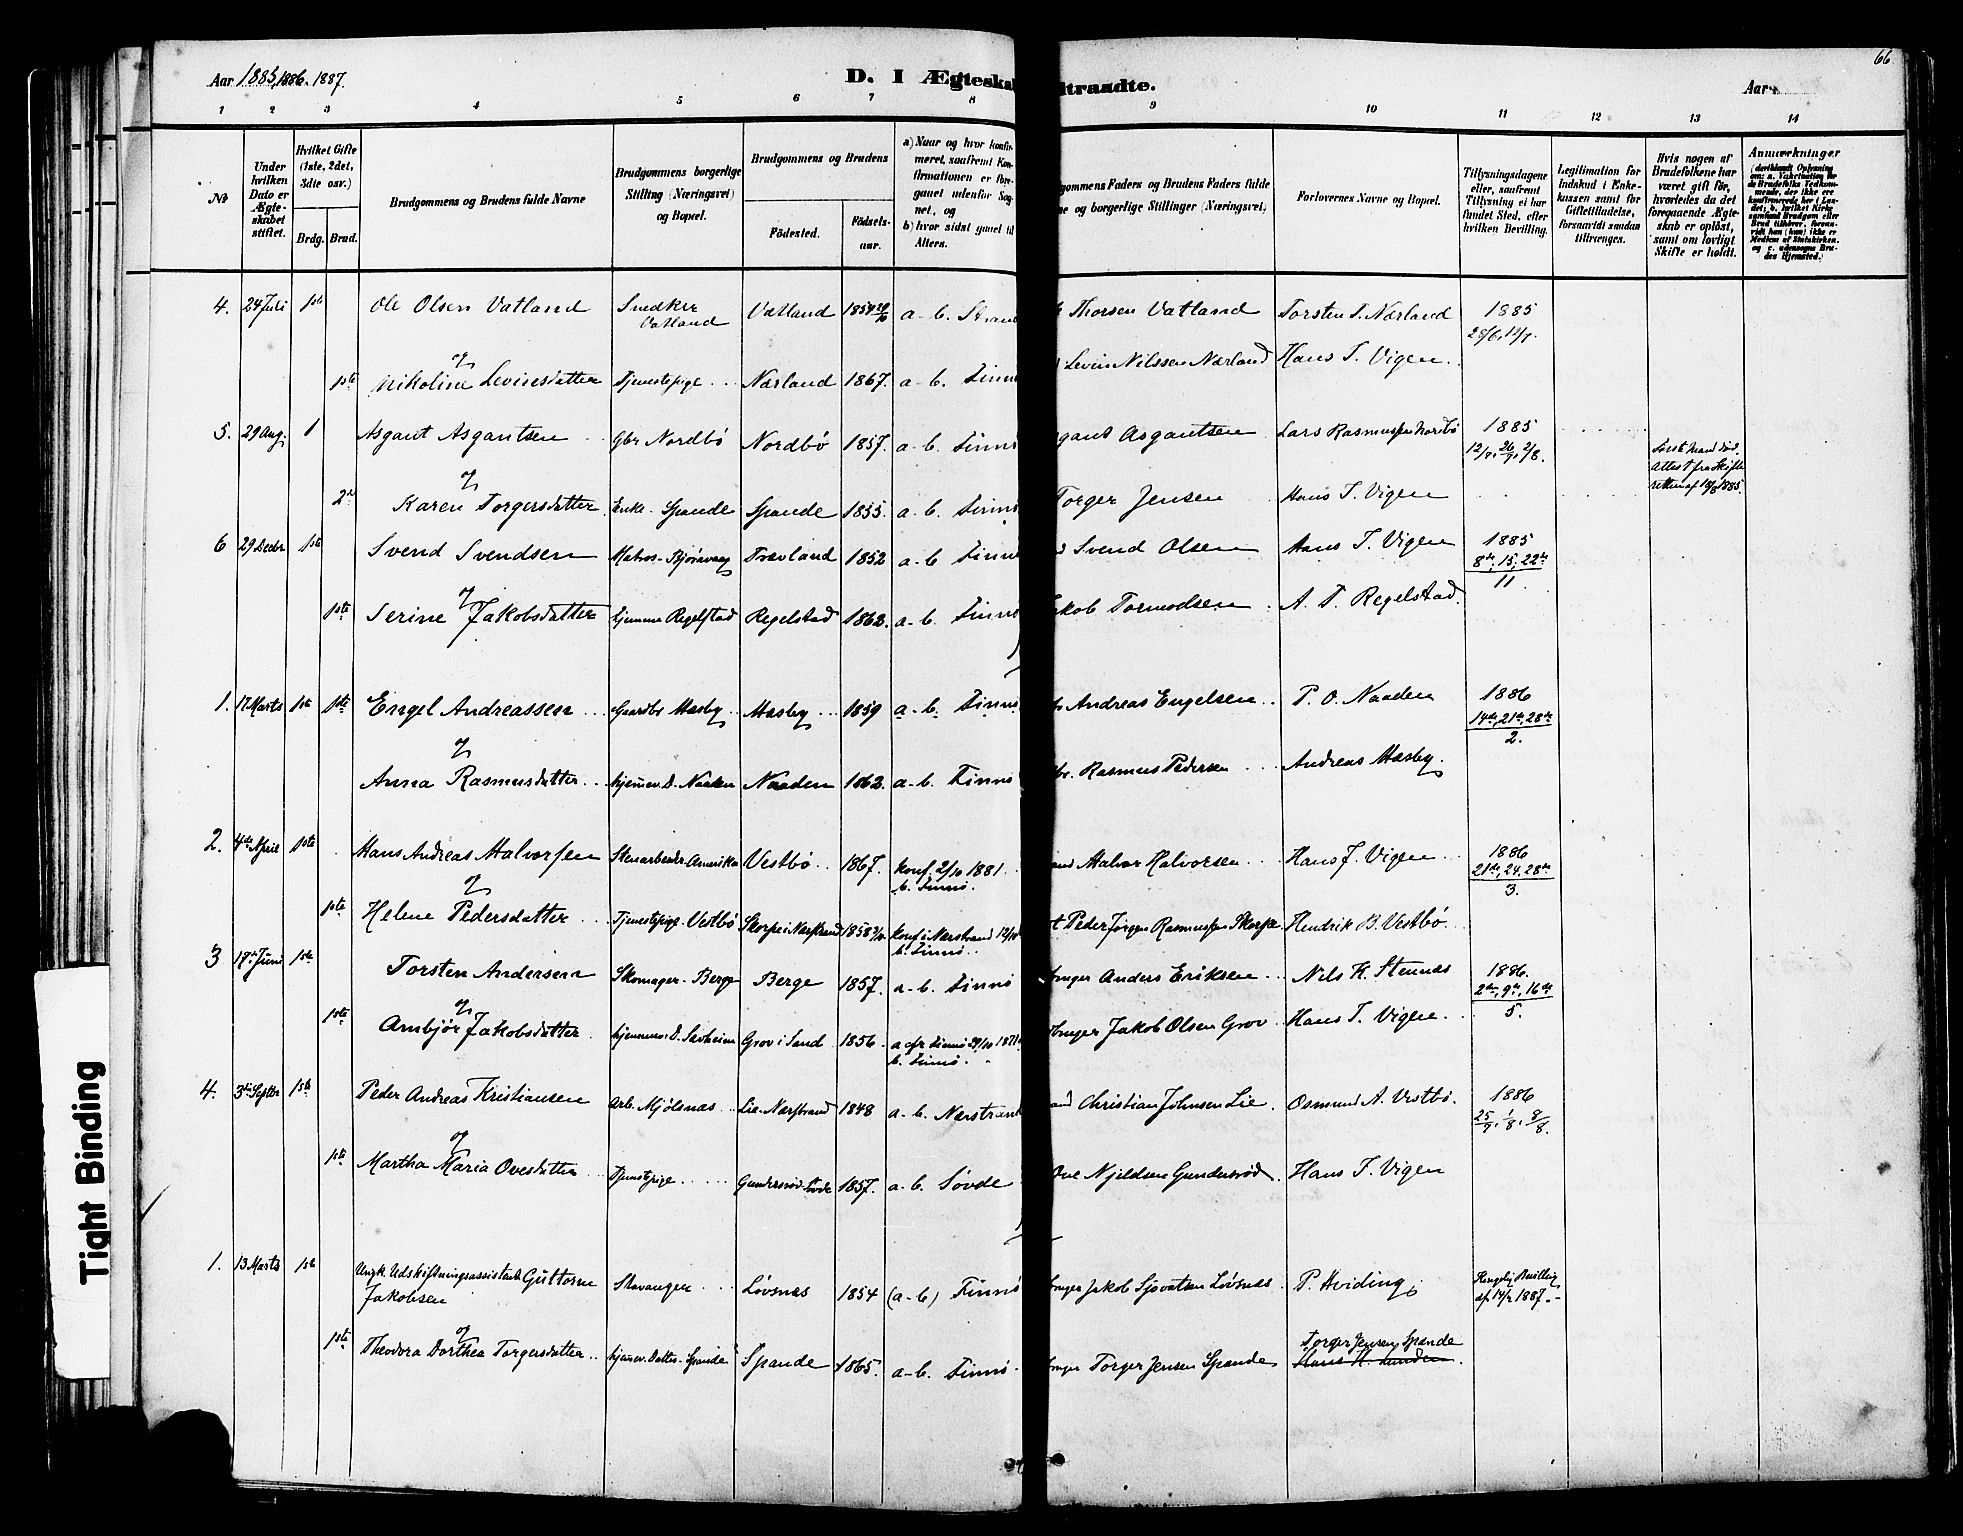 Aar 1885, 1886. 1887.
D. I Ægteska
ttraadte.
Aar
66
1 2 3 4 5 6 7 8 9 10 11 12 13 14
No
Under hvilken Dato er Ægteskabet stiftet.
Hvilket Gifte (1ste, 2det, 3die osv.)
Brdg. Brud.
Brudgommens og Brudens fulde Navne
Brudgommens borgerlige Stilling (Næringsvei) og Bopæl.
Brudgommens og Brudens
Fødested.
Fødselsaar.
a) Naar og hvor konfirmeret, saafremt Konfirmationen er foregaaet udenfor Sognet, og
b) hvor sidst gaaet til Alters.
gommens Faders og Brudens Faders fulde
ne og borgerlige Stillinger (Næringsvei)
Forlovernes Navne og Bopæl.
Tillysningsdagene eller, saafremt Tillysning ei har fundet Sted, efter hvilken Bevilling.
Legitimation for Indskud i Enkekassen samt for Giftetilladelse, forsaavidt saadan tiltrænges.
Hvis nogen af Brudefolkene har været gift før, hvorledes da det foregaaende Ægteskab er opløst, samt om lovligt Skifte er holdt.
Anmærkninger
4. 24 Juli 1ste Ole Olsen Vatland Snedker Vatland Vatland 1859 a-b. Strand
Thorsen Vatland Torsten T. Nærland 1885
28/6, 12/7.
og
1ste Nikoline Levinsdatter Tjenestepige Nærland 1867. a-b. Finnø
Levin Nilssen Nærland Hans T. Vigen.
5. 29 Aug. 1 Asgaut Asgautsen Gbr Nordbø Nordbø 1857. a-b. Finnø
gaut Asgautsen Lars Rasmussen Nordbø 1885
12/7, 26/7, 2/8.
Første Mand død. Attest fra Skifteretten af 18/8 1885.
og
2den Karen Torgersdatter Enke Spande Spande 1855. a-b. Finnø
Torger Jensen Hans T. Vigen
6 29 Decbr 1ste Svend Svendsen Matros Bjøravaag Trævland 1852 a-b Finnø
Svend Olsen Hans T. Vigen 1885
8de, 15, 22de
11.
og
1ste Serine Jakobsdatter hjemme Regelstad Regelstad 1862. a-b. Finnø
akob Tormodsen A. T. Regelstad.
1. 17 Marts 1ste 1ste Engel Andreassen Gaardbr Hæsby Hæsby 1859 a-b. Finnø
Andreas Engelsen P. O. Naaden 1886
14de, 21de, 28de
2.
og
Anna Rasmusdatter hjemmev. D. Naaden Naaden 1862. a-b. Finnø
br. Rasmus Pedersen Andreas Hæsby.
2. 4de April 1ste Hans Andreas Halvorsen Stenarbeider Amerika Vestbø 1867. Konf. 2/10 1881
b. Finnø.
and Halvor Halvorsen Hans T. Vigen 1886
21de, 24, 28de
3.
og
1ste Helene Pedersdatter Tjenestepige Vestbø Skorpe i Nærstrand 1858 Konf. i Nærstrand 12/10
b. Finnø
Peder Jørgen Rasmussen Skorpe Hendrik B. Vestbø
3 17de Juni 1ste Torsten Andersen Skomager Berge Berge 1857. a-b. Finnø
bruger Anders Eriksen Nils K. Stennæs 1886.
2den, 9de, 16de
5.
og
1ste Ambjør Jakobsdatter hjemmev. D. Savheim Grov i Sand 1856
b. Finnø.
bruger Jakob Olsen Grov Hans T. Vigen.
4. 3die Septbr 1ste Peder Andreas Kristiansen Arb. Mjølsnæs Lie Nærstrand 1848 a-b. Nærstrand
and Christian Johnsen Lie. Osmund A. Vestbø. 1886
25/7, 1/8, 8/8.
og
1ste Martha Maria Ovesdatter Tjenestpige Gundersrød Søvde 1857. a-b. Søvde
Ove Njeldsen Gundersrød. Hans T. Vigen
1. 13 Marts 1ste Ungk. Udskiftningsassistent Guttorm
Jakobsen
Stavanger Løvsnæs 1854 (a-b) Finnø
bruger Jakob Sjovatsen Løvsnæs P. Hviding Kongelig Bevilling
af 14/2 1887.
og
1ste Theodora Dorthea Torgersdatter hjemmev. Datter Spande Spande 1865. a-b. Finnø
bruger Torger Jensen Spande Torger Jensen Spande
Tight Binding